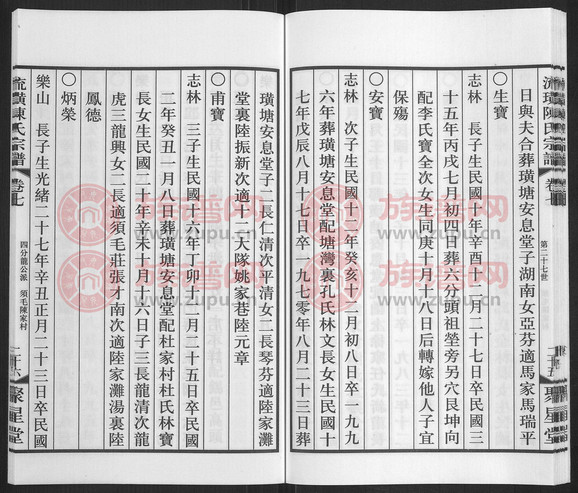 流璜陳氏宗譜
卷七
第二十七世
二十五
聚星堂
日與夫合葬璜塘安息堂子湖南女亞芬適馬家馬瑞平
〇生寶
志林 長子生民國十年辛酉十二月二十七日卒民國三
十五年丙戌七月初四日葬六分頭祖塋旁另穴艮坤向
配李氏寶全次女生同庚十月十八日后轉嫁他人子宜
保殤
〇安寶
志林 次子生民國十二年癸亥十二月初八日卒一九九
六年葬璜塘安息堂配塘灣裏孔氏林文長女生民國十
七年戊辰八月十七日卒一九七〇年八月二十三日葬
璜塘安息堂子二長仁清次平清女二長琴芬適陸家灘
堂裏陸振新次適十一大隊姚家巷陸元章
〇甫寶
志林 三子生民國十六年丁卯十二月二十五日卒民國
二年癸丑一月八日葬璜塘安息堂配杜家村杜氏林寶
長女生民國二十年辛未十月十六日子三長龍清次龍
虎三龍興女二長適須毛莊張才南次適陸家灘湯裏陸
鳳德
〇炳榮
樂山 長子生光緒二十七年辛丑正月二十三日卒民國
流璜陳氏宗譜
卷七
四分龍公派 須毛陳家村
二十六
聚星堂
族譜网
www.zupu.cn
族譜网
www.zupu.cn